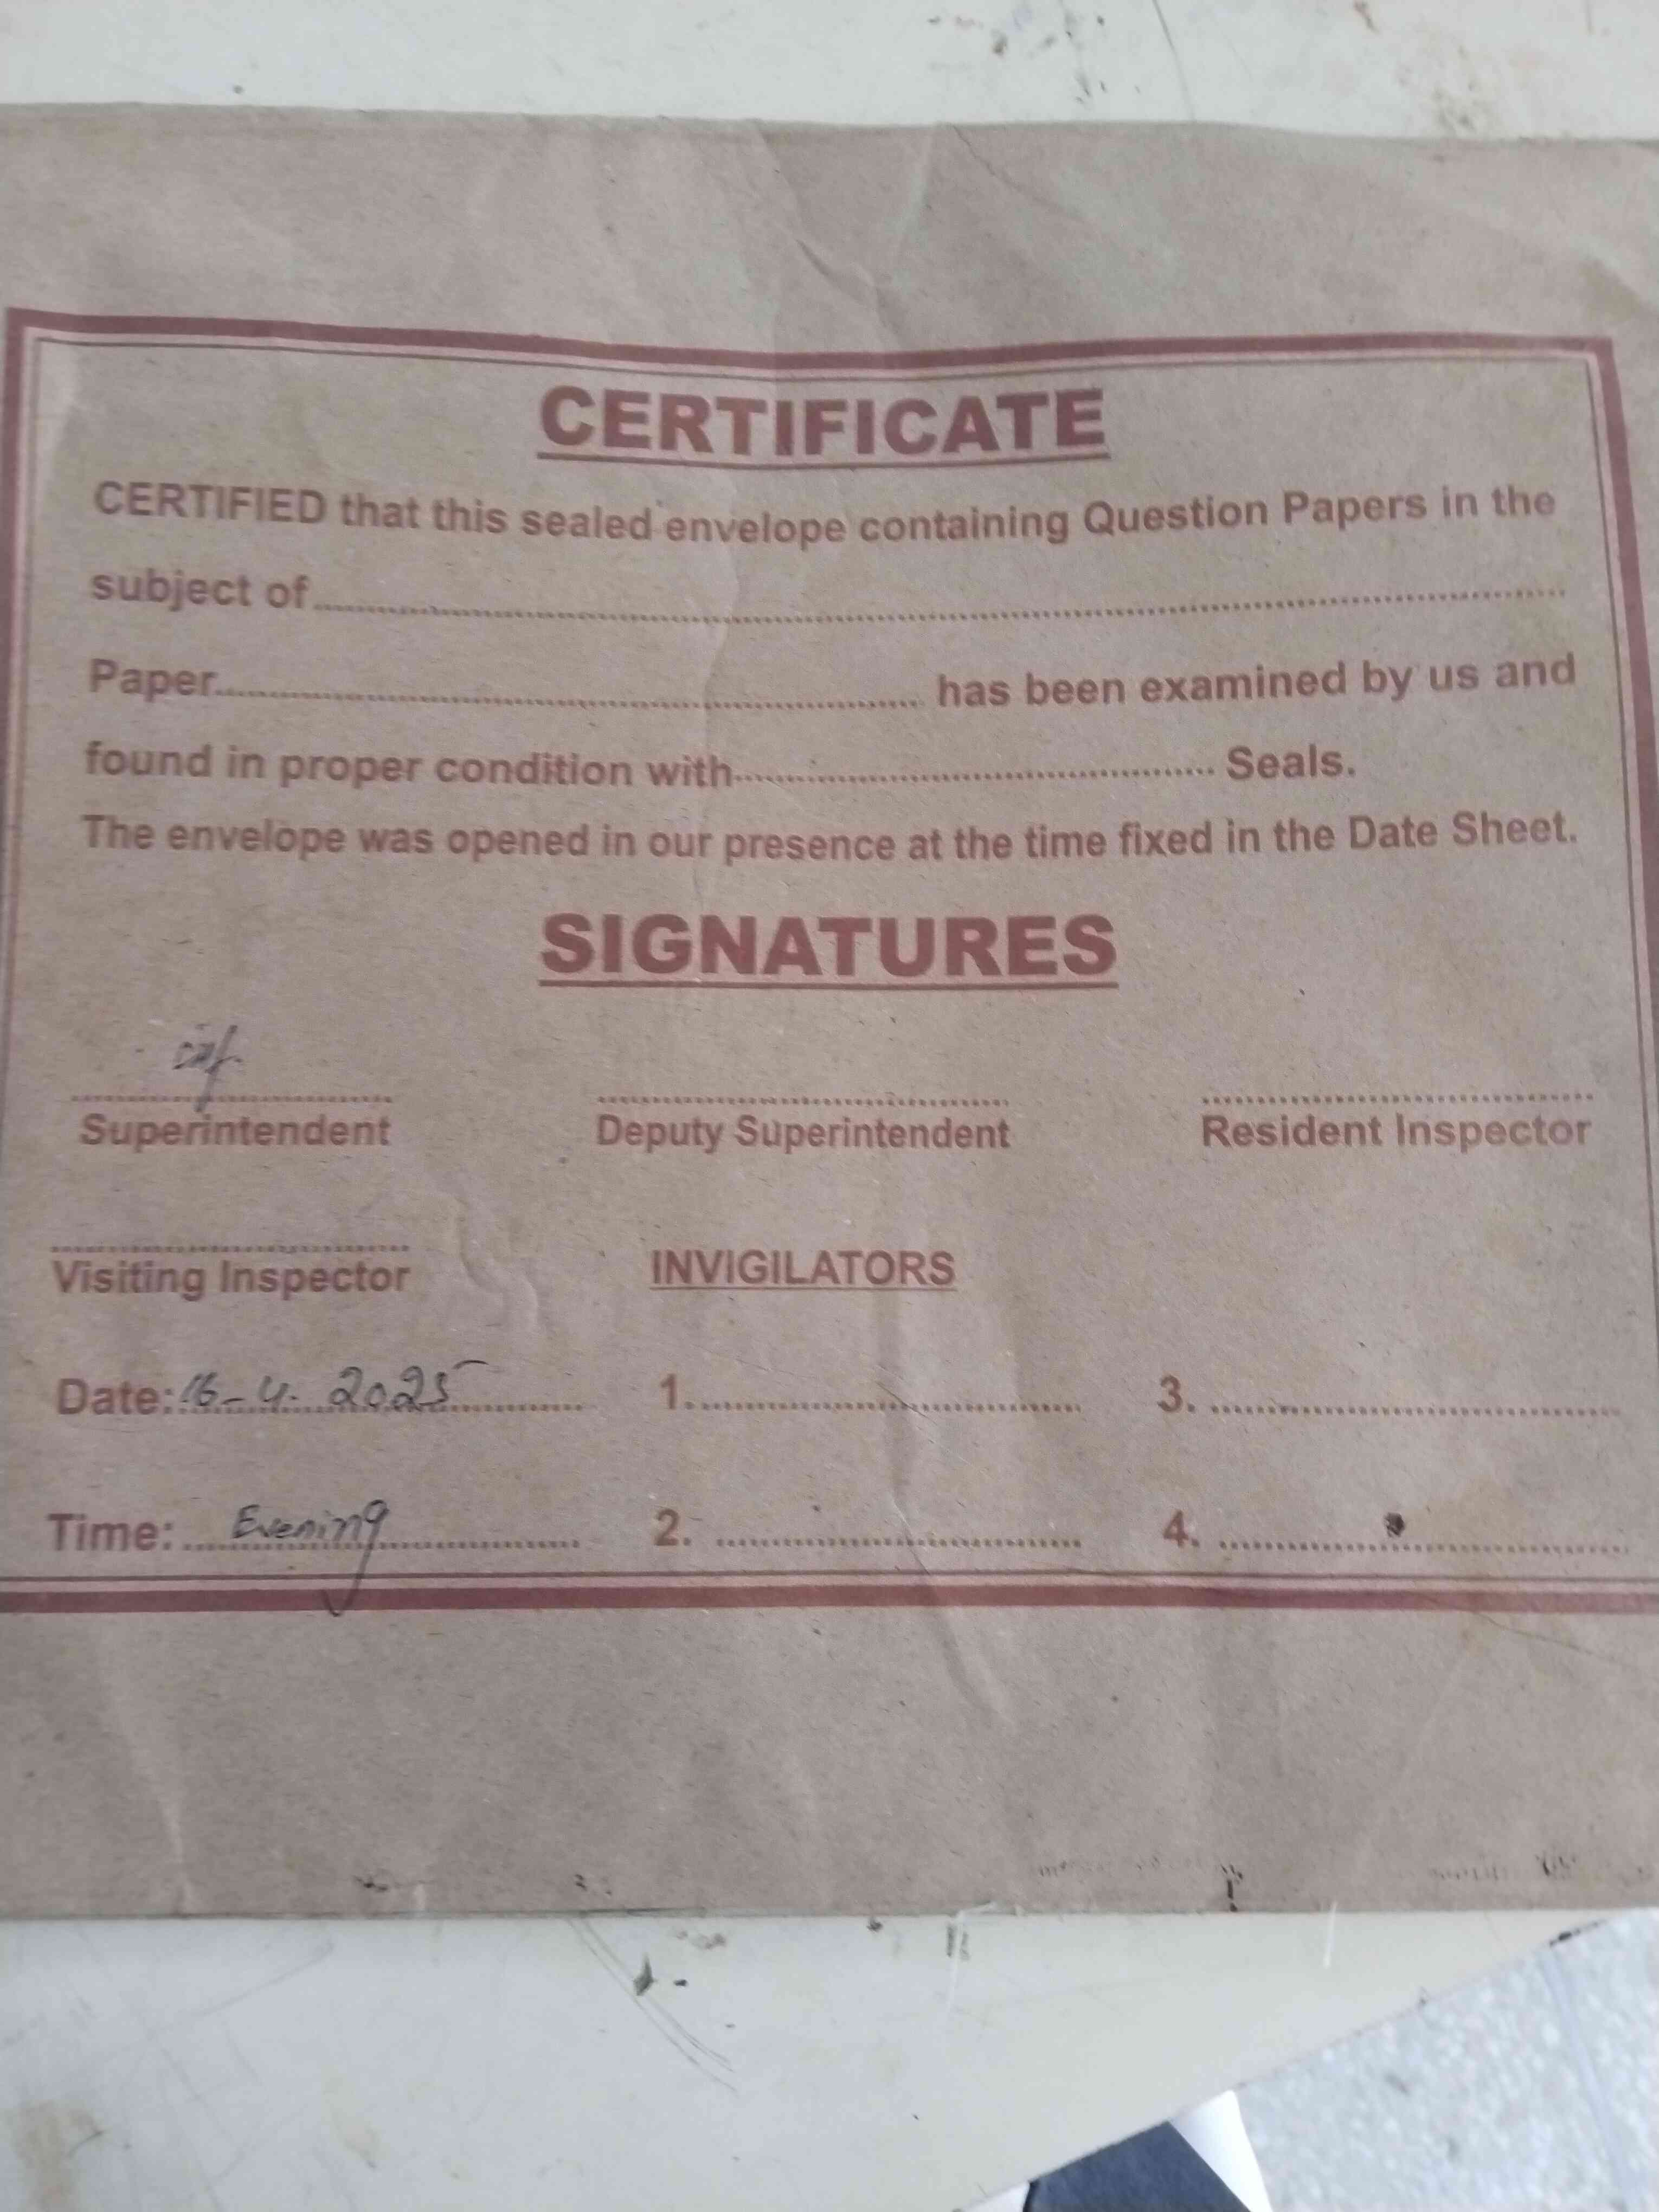 CERTIFICATE
CERTIFIED that this sealed envelope containing Question Papers in the
subject of
Paper has been examined by us and
found in proper condition with Seals.
The envelope was opened in our presence at the time fixed in the Date Sheet.
SIGNATURES
Superintendent Deputy Superintendent Resident Inspector
Visiting Inspector INVIGILATORS
Date: 16-4. 2025 1. 3.
Time: Evening 2. 4.